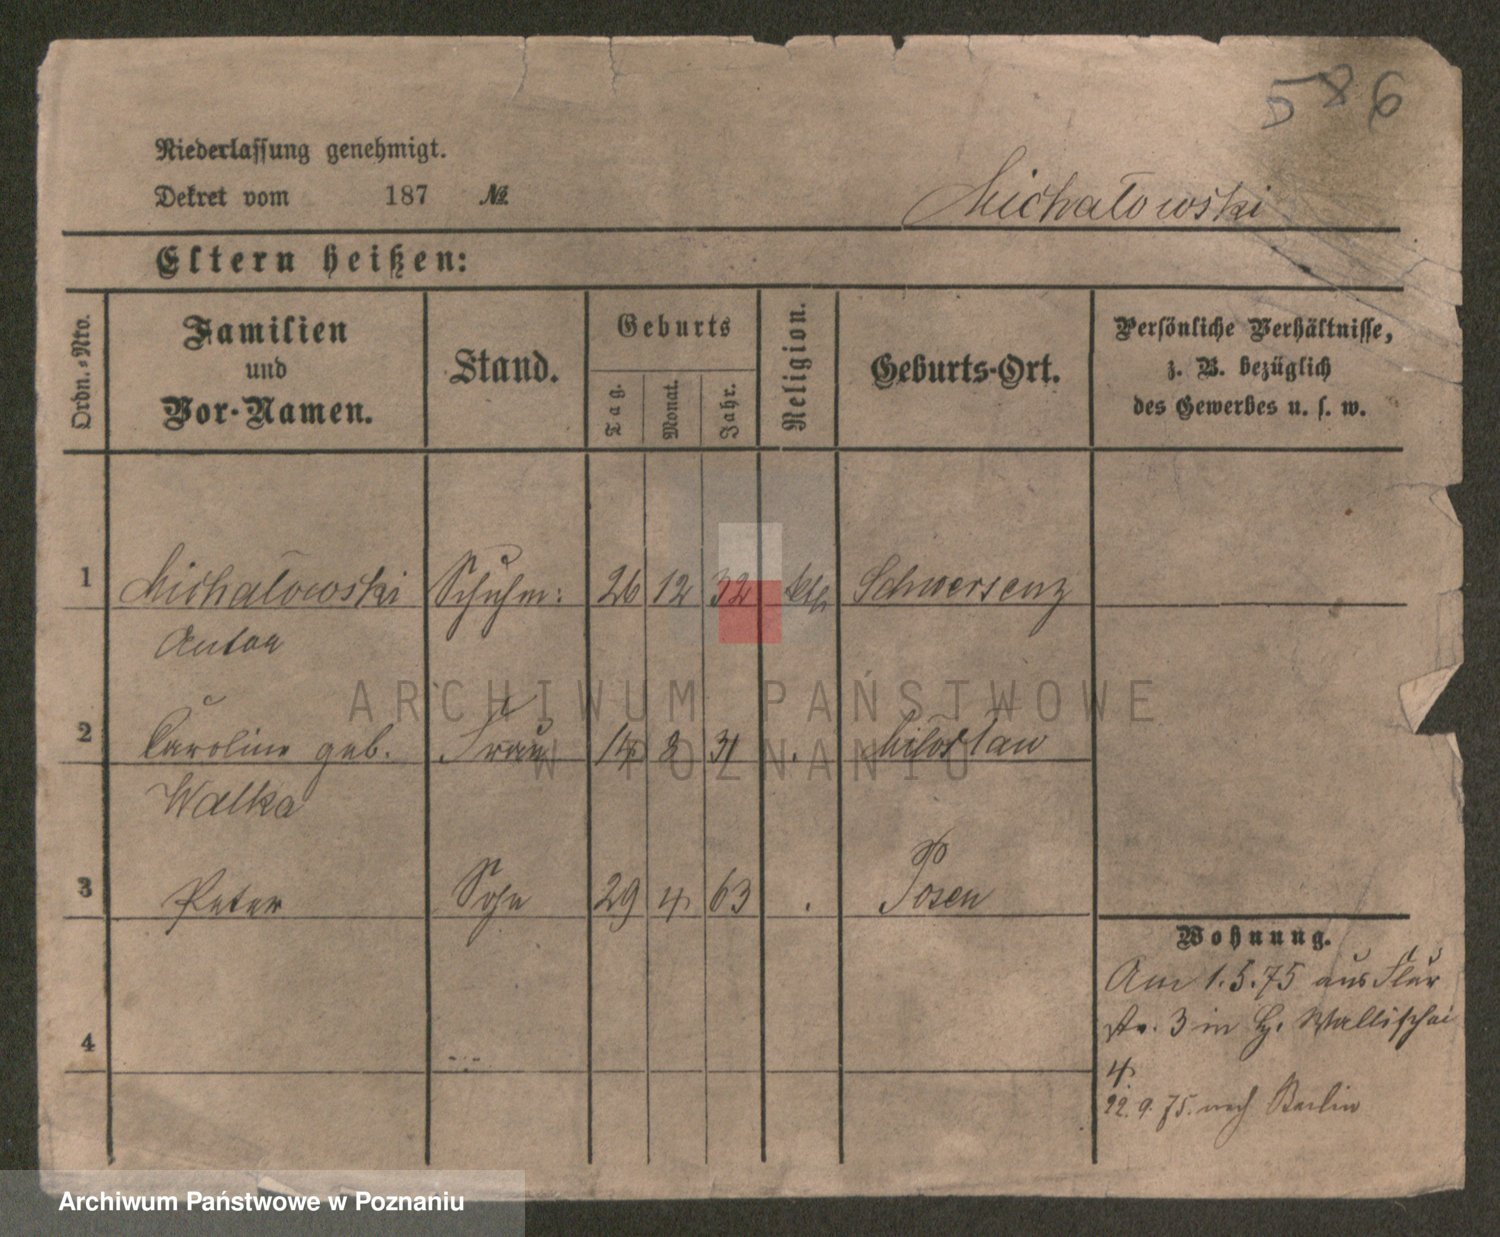 586
Niederlassung genehmigt.
Dekret vom 187 №
Michałowski
Eltern heißen:
Ordn.-Nro.
Familien und Vor-Namen.
Stand.
Geburts
Tag.
Monat.
Jahr.
Religion.
Geburts-Ort.
Persönliche Verhältnisse,
z. B. bezüglich
des Gewerbes u. s. w.
1 Michałowski Schuhm: 26 12 32 kth Schwersenz
Anton
2 Caroline geb. Frau 14 2 31 . Miłosław
Walka
3 Peter Sohn 29 4 63 . Posen
Wohnung.
Am 1.5.75 aus Flur
str. 3 in Wallischei
4
22.9.75. nach Berlin
4
ARCHIWUM PAŃSTWOWE
W POZNANIU
Archiwum Państwowe w Poznaniu